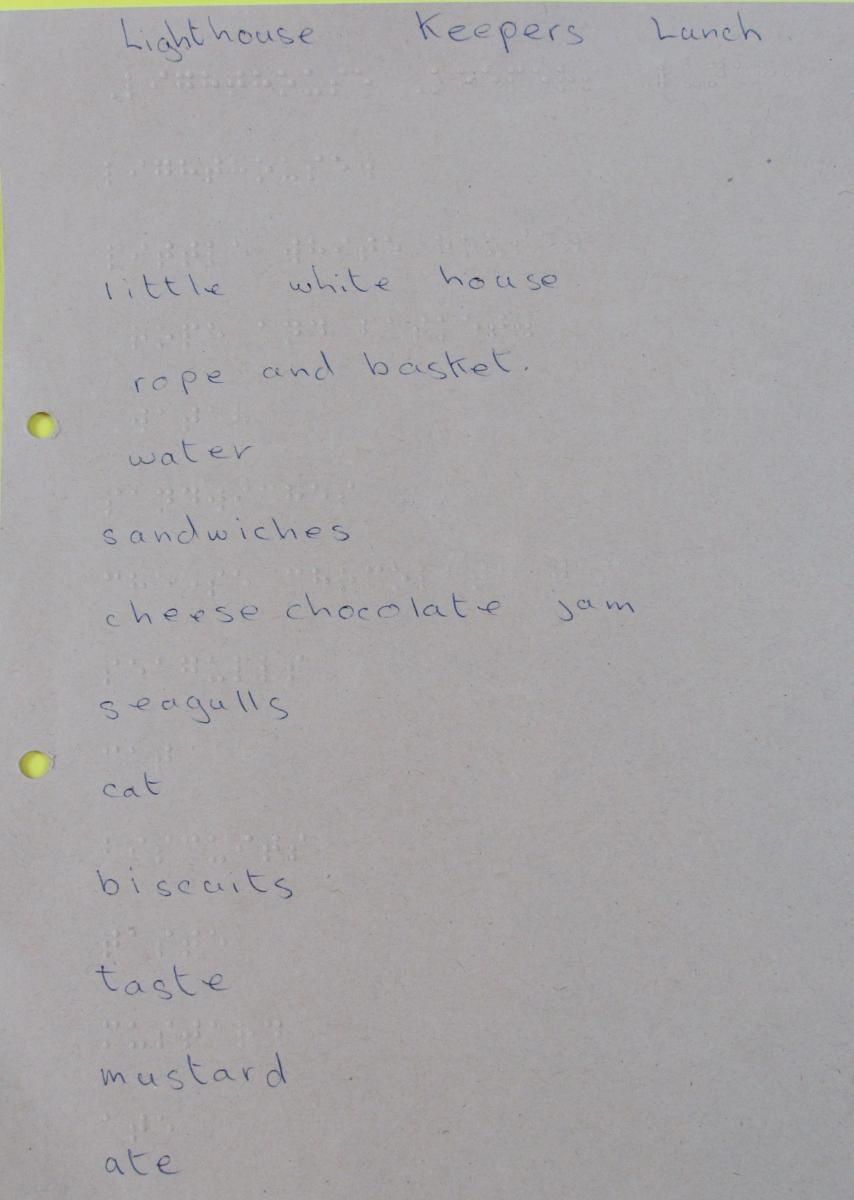 Lighthouse Keepers Lunch
little white house
rope and basket.
water
sandwiches
cheese chocolate jam
seagulls
cat
biscuits
taste
mustard
ate